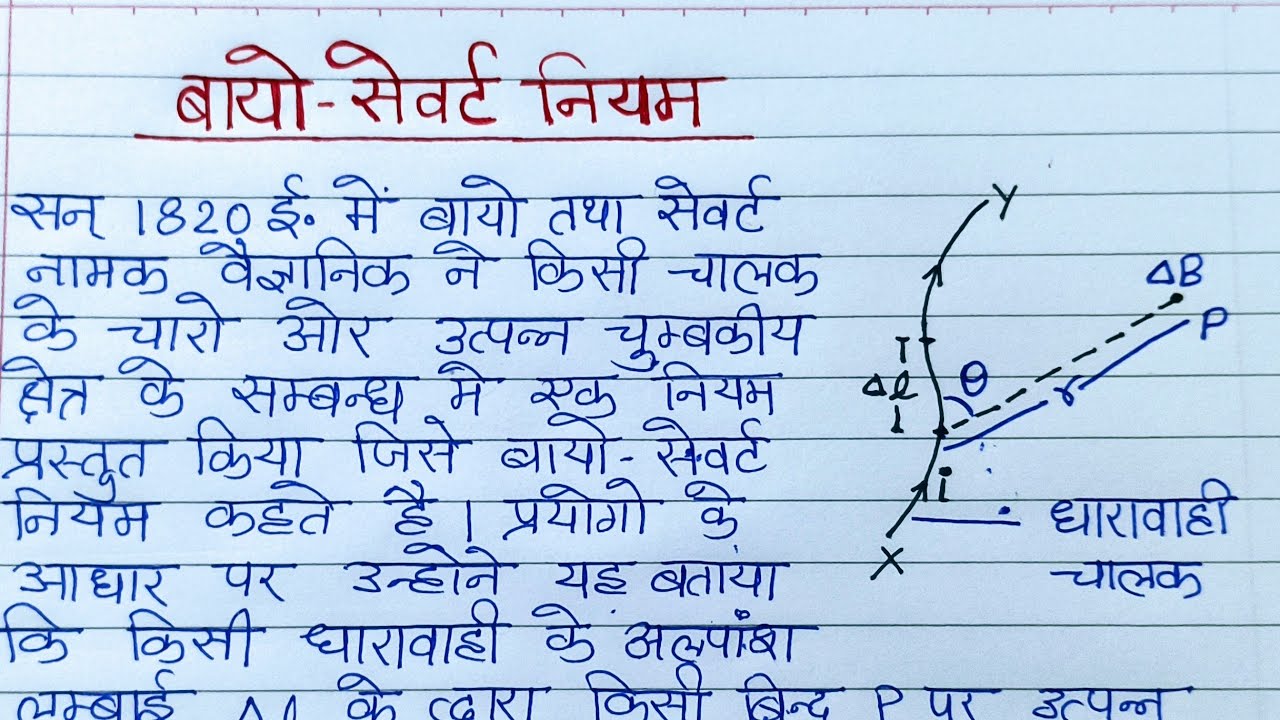 बायो-सेवर्ट नियम
सन् 1820 ई. में बायो तथा सेवर्ट
नामक वैज्ञानिक ने किसी चालक
के चारो ओर उत्पन्न चुम्बकीय
क्षेत्र के सम्बन्ध मे एक नियम
प्रस्तुत किया जिसे बायो-सेवर्ट
नियम कहते है। प्रयोगो के
आधार पर उन्होने यह बताया
कि किसी धारावाही के अल्पांश
लम्बाई Δl के द्वारा किसी बिन्दु P पर उत्पन्न
Y
ΔB
P
θ
Δl
r
i
X
धारावाही
चालक